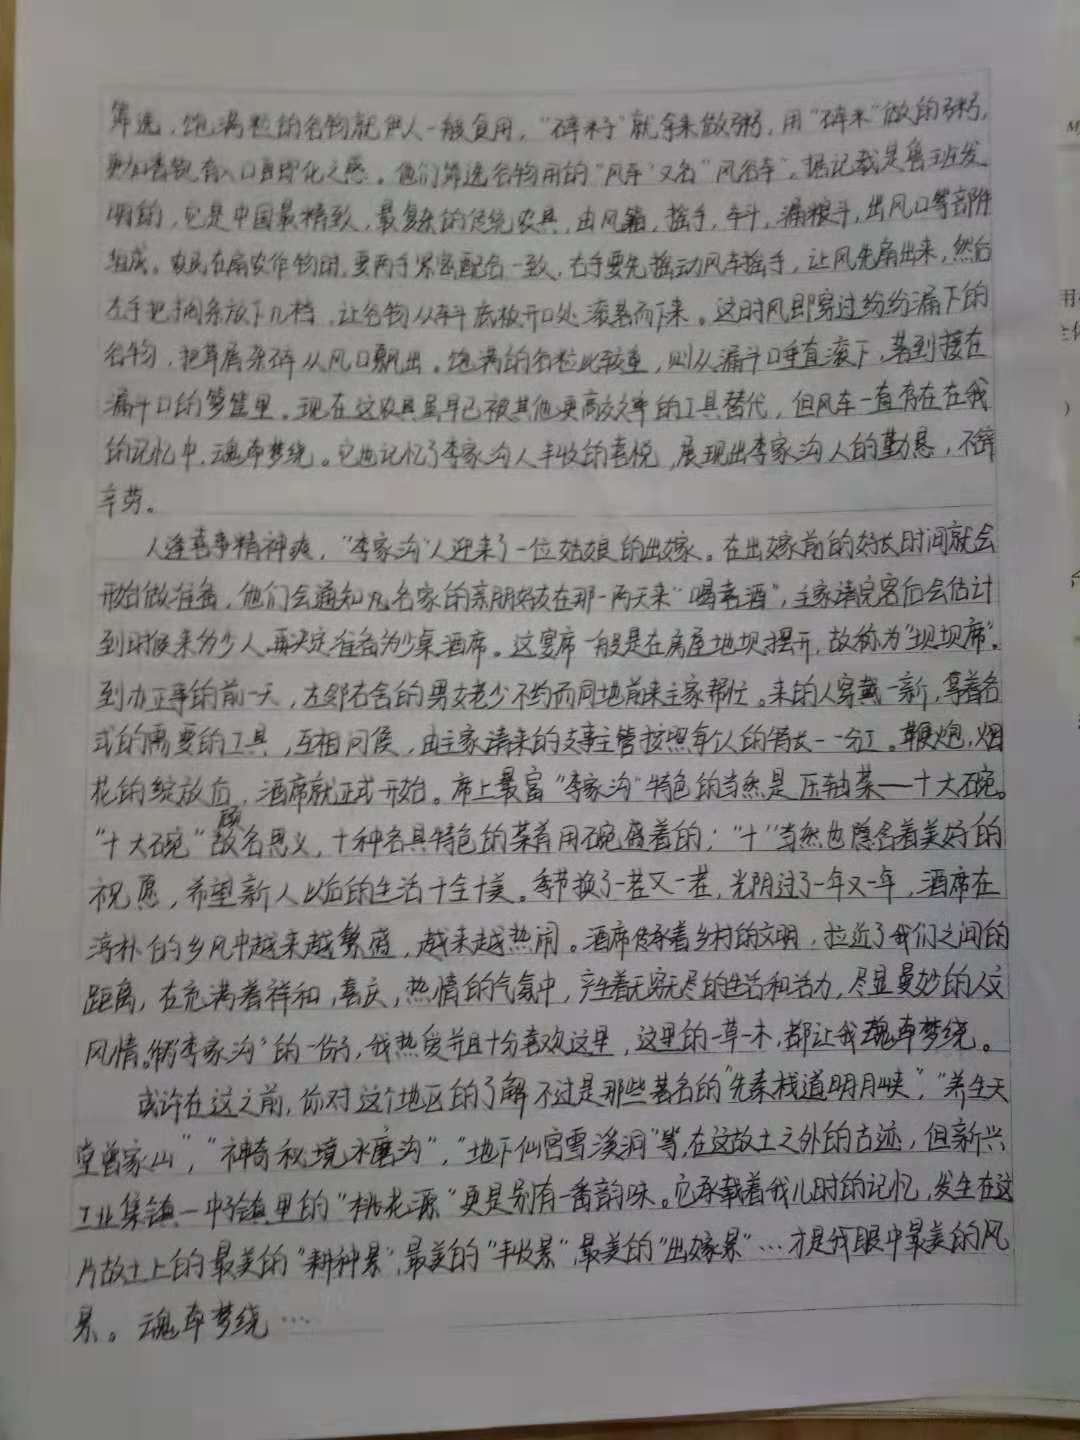 筛选，饱满粒的谷物就供人一般食用，“碎米子”就拿来做粥，用“碎米”做的粥，
更加香甜有入口即化之感。他们筛选谷物用的“风车”又名“风谷车”。据记载是鲁班发
明的，它是中国最精致，最复杂的传统农具，由风箱，摇手，车斗，漏粮斗，出风口等部件
组成。农民在扇农作物时，要两手紧密配合一致，右手要先摇动风车摇手，让风先扇出来，然后
左手把搁条放下几档，让谷物从车斗底板开口处滚落而下来。这时风即穿过纷纷漏下的
谷物，把草屑杂碎从风口飘出。饱满的谷粒比较重，则从漏斗口垂直滚下，落到接在
漏斗口的箩筐里。现在这农具虽早已被其他更高效率的工具替代，但风车一直存在在我
的记忆中，魂牵梦绕。它也记忆了李家沟人丰收的喜悦，展现出李家沟人的勤恳，不辞
辛劳。
人逢喜事精神爽，“李家沟”人迎来了一位姑娘的出嫁。在出嫁前的好长时间就会
开始做准备，他们会通知几名家的亲朋好友在那一两天来“喝喜酒”，主家请完客后会估计
到时候来多少人，再决定准备多少桌酒席。这宴席一般是在房屋地坝摆开，故称为“坝坝席”。
到办正事的前一天，左邻右舍的男女老少不约而同地前来主家帮忙。来的人穿戴一新，拿着各
式的需要的工具，互相问候，由主家请来的支事主管按照每个人的特长一一分工。鞭炮，烟
花的绽放后，酒席就正式开始。席上最富“李家沟”特色的当然是压轴菜——十大碗。
“十大碗”顾名思义，十种各具特色的菜肴用碗盛着的；“十”当然也隐含着美好的
祝愿，希望新人以后的生活十全十美。季节换了一茬又一茬，光阴过了一年又一年，酒席在
淳朴的乡风中越来越繁盛，越来越热闹。酒席传承着乡村的文明，拉近了我们之间的
距离，在充满着祥和，喜庆，热情的气氛中，产生着无穷无尽的生活和活力，尽显曼妙的人文
风情。作为“李家沟”的一份子，我热爱并且十分喜欢这里，这里的一草一木，都让我魂牵梦绕。
或许在这之前，你对这个地区的了解不过是那些著名的“先秦栈道明月峡”，“养生天
堂曾家山”，“神奇秘境水磨沟”，“地下仙宫雪溪洞”等，在这故土之外的古迹，但新兴
工业集镇—中子镇里的“桃花源”更是别有一番韵味。它承载着我儿时的记忆，发生在这
片故土上的最美的“耕种景”，最美的“丰收景”，最美的“出嫁景”…才是我眼中最美的风
景。魂牵梦绕…